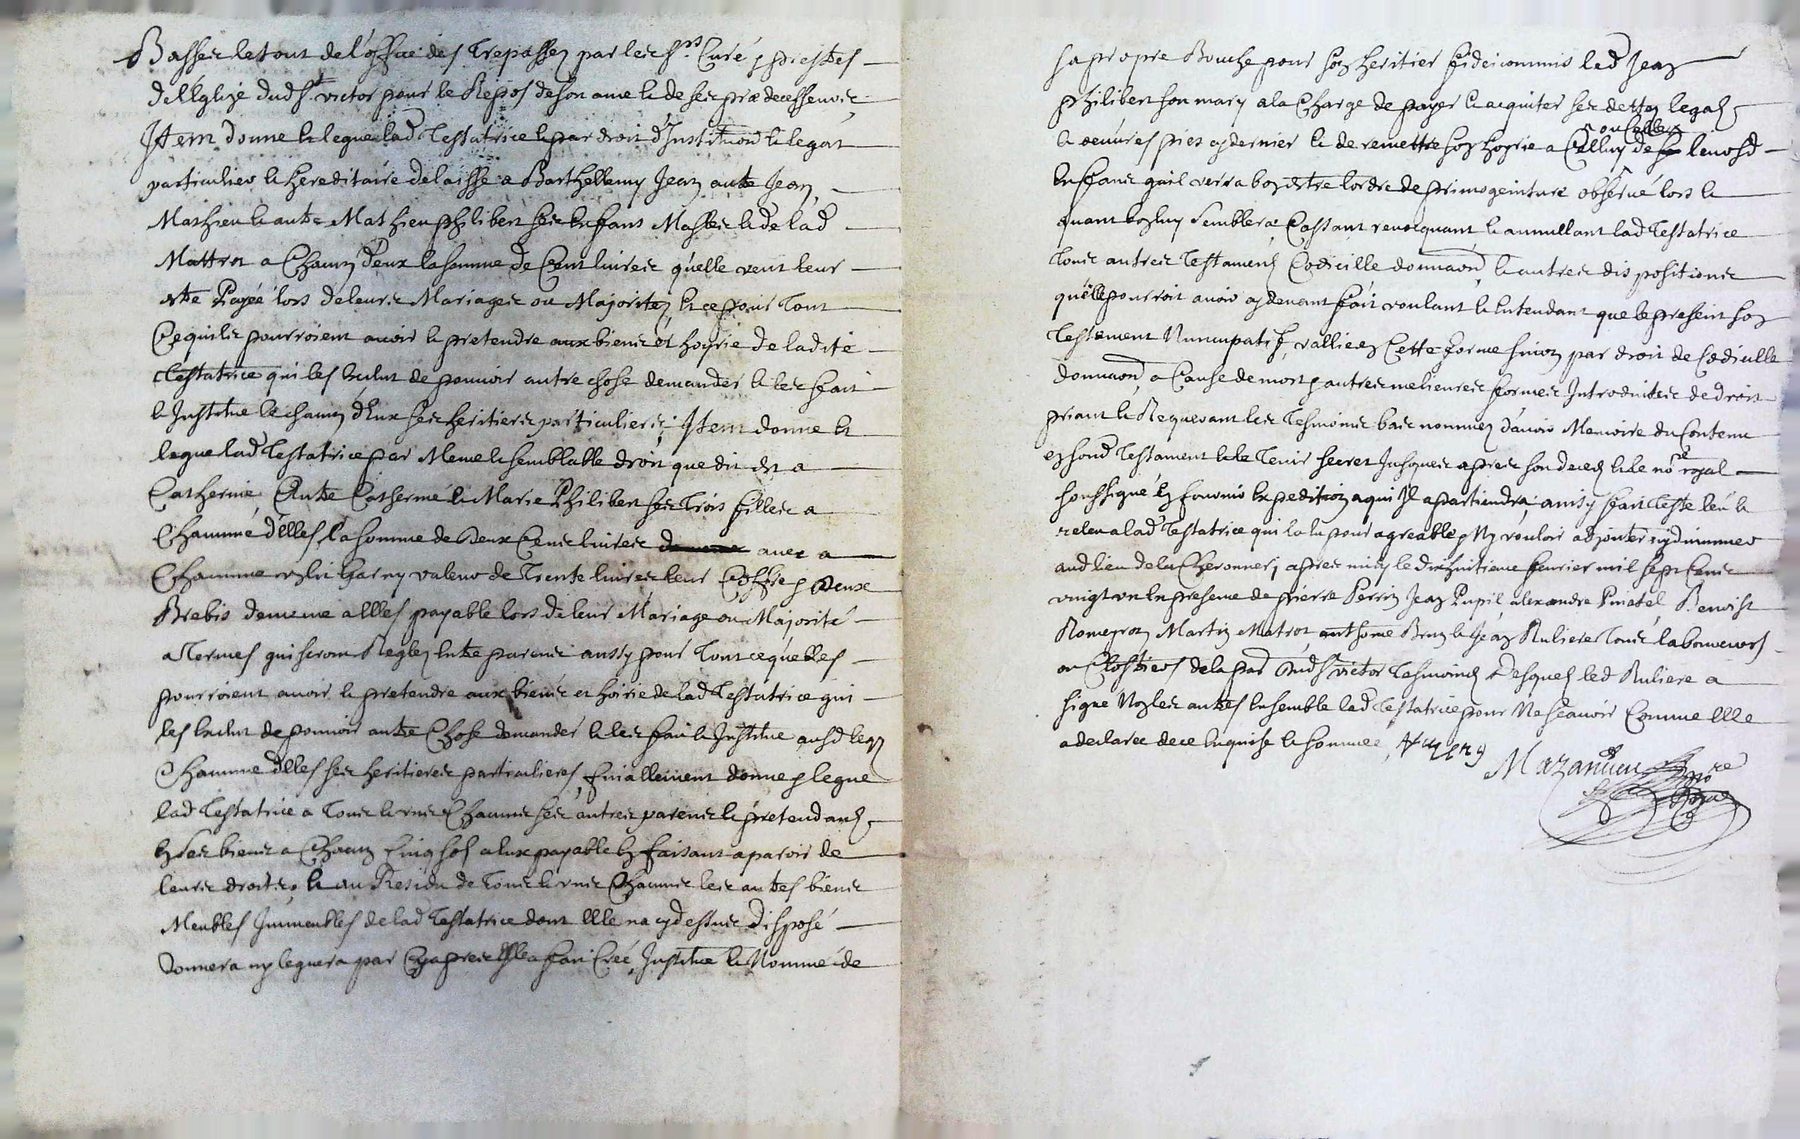 Basses le tout de l'office des Trepassez par les srs Curé & prestres
de l'Eglize dud st victor pour le Repos de son ame & de ses prædecesseurs
Item donne & legue lad Testatrice & par droit d'Institution & legat
particulier & hereditaire delaisse a Barthellemy Jean autre Jean
Mathieu & autre Mathieu philibert ses Enffans Masles & de lad
Mattrot a Chacun d'eux la somme de Cent livres qu'elle veut leur
estre Payée lors de leurs Mariages ou Majoritez & ce pour Tout
Ce quils pourroient avoir & pretendre aux biens et hoyrie de ladite
Testatrice qui les Exclut de pouvoir autre chose demander & les fait
& Institue & chacun d'Eux ses heritiers particuliers, Item donne &
legue lad Testatrice par Meme & semblable droit que dit est a
Catherine Autre Catherine & Marie Philibert ses Trois filles a
Chacune d'Elles la somme de Deux Cens livres avec a
Chacune garny valeur de Trente livres leur Coffre & Deux
Brebis de meme a Elles payable lors de leur Mariage ou Majorité
a Termes qui seront Reglez Entre parens aussy pour Tout ce qu'elles
pourroient avoir & pretendre aux biens et hoirie de lad Testatrice qui
les Exclut de pouvoir autre Chose demander & les fait & Institue
Chacune d'Elles ses heritieres particulieres, finallement donne & legue
lad Testatrice a Tous & uns Chacuns ses autres parens & pretendans
En ses biens a Chacun Cinq sols a Eux payable En faisant aparoir de
leurs droits, & au Residu de Tous & uns Chacuns les autres biens
Meubles Immeubles de lad Testatrice dont Elle na cy dessus disposé
donnera ny leguera par Cy apres Elle a fait Créé, Institue & Nommé de
sa propre Bouche pour son heritier fideicommis led Jean
Philibert son mary a la Charge de payer & acquiter ses dettes legats
& oeuvres pies & de remettre son hoyrie a Celluy ou Celle de leursd
Enffans quil verra bon estre lordre de primogeniture observé lors &
quant bon luy semblera Cassant revoquant & annullant lad Testatrice
Tous autres Testamens Codicille donnaon & autres dispositions
quelle pourroit avoir cy devant fait voulant & Entendant que le present son
Testament Nuncupatif vallie en Cette forme sinon par droit de Codicille
donnaon a Cause de mort & autres meilleures formes Introduites de droit
priant & Requerant les Tesmoins bas nommez d'avoir Memoire du Contenu
en sond Testament & le Tenir secret Jusques apres son deces & le nore royal
soussigné En fournir Expedition a qui Il apartiendra ainsy fait Testé leu &
releu a lad Testatrice qui la eu pour agreable Ny vouloir adjouter ny diminuer
aud lieu de la Cheronnery apres midy le dixhuitieme fevrier mil sept Cens
vingt un En presence de pierre Perrin Jean Pupil alexandre Pinatel Benoist
Romeyron Martin Matrot anthoine Brun & Jean Ruliere Tous laboureurs
ou Clostiers de la par Dud St victor Tesmoins Desquels led Ruliere a
signé Non les autres Ensemble lad Testatrice pour Ne scavoir Comme Elle
a declarée de ce Enquise & sommée,
Mazandieu nore
Royal